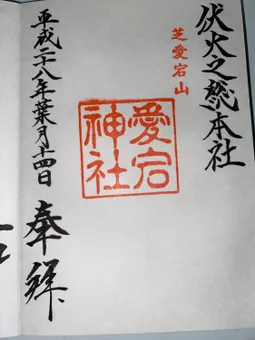 伏火之総本社
芝愛宕山
愛宕神社
奉拜
平成二十八年葉月十四日